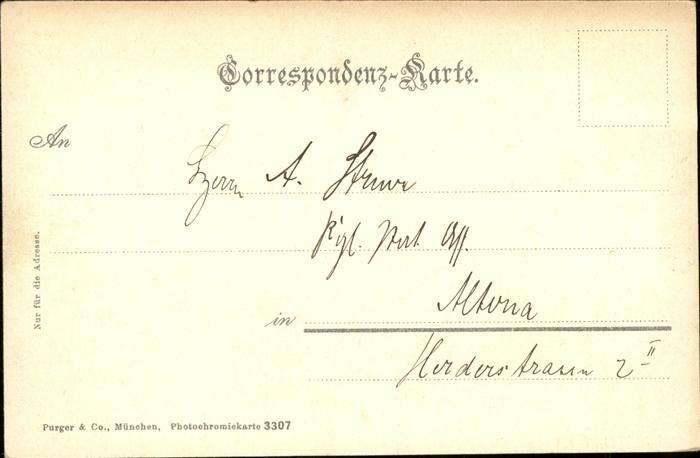 Correspondenz-Karte.
An
Herrn A. Struve
Kgl.
Altona
in
Herderstrassen 2 II
Nur für die Adresse.
Purger & Co., München, Photochromiekarte 3307